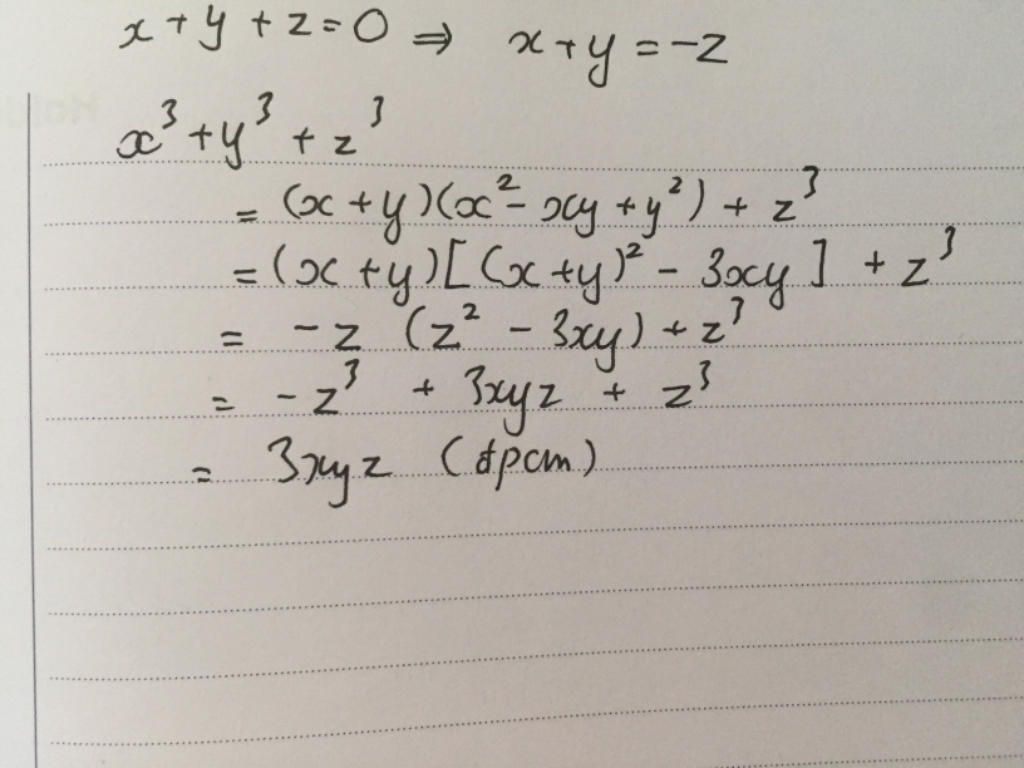 x + y + z = 0 ⇒ x + y = -z
x³ + y³ + z³
= (x + y)(x² - xy + y²) + z³
= (x + y)[(x + y)² - 3xy] + z³
= -z (z² - 3xy) + z³
= -z³ + 3xyz + z³
= 3xyz (đpcm)